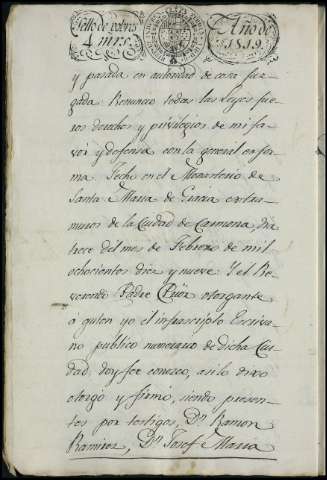 Sello de pobres
4 mrs.
Año de
1819.
y pasada en autoridad de cosa juz-
gada Renuncio todas las Leyes fue-
ros derechos y privilegios de mi fa-
vor y defensa con la general en for-
ma. Fecho en el Monasterio de
Santa Maria de Gracia extra-
muros de la Ciudad de Carmona dia
trece del mes de Febrero de mil
ochocientos diez y nueve. Y el Re-
verendo Padre Prior otorgante
a quien yo el infrascripto Escriva-
no publico numerario de dicha Ciu-
dad, doy fee conosco, asi lo dixo
otorgó y firmó, siendo presen-
tes por testigos, Dn. Ramon
Ramires, Dn. Josef Maria